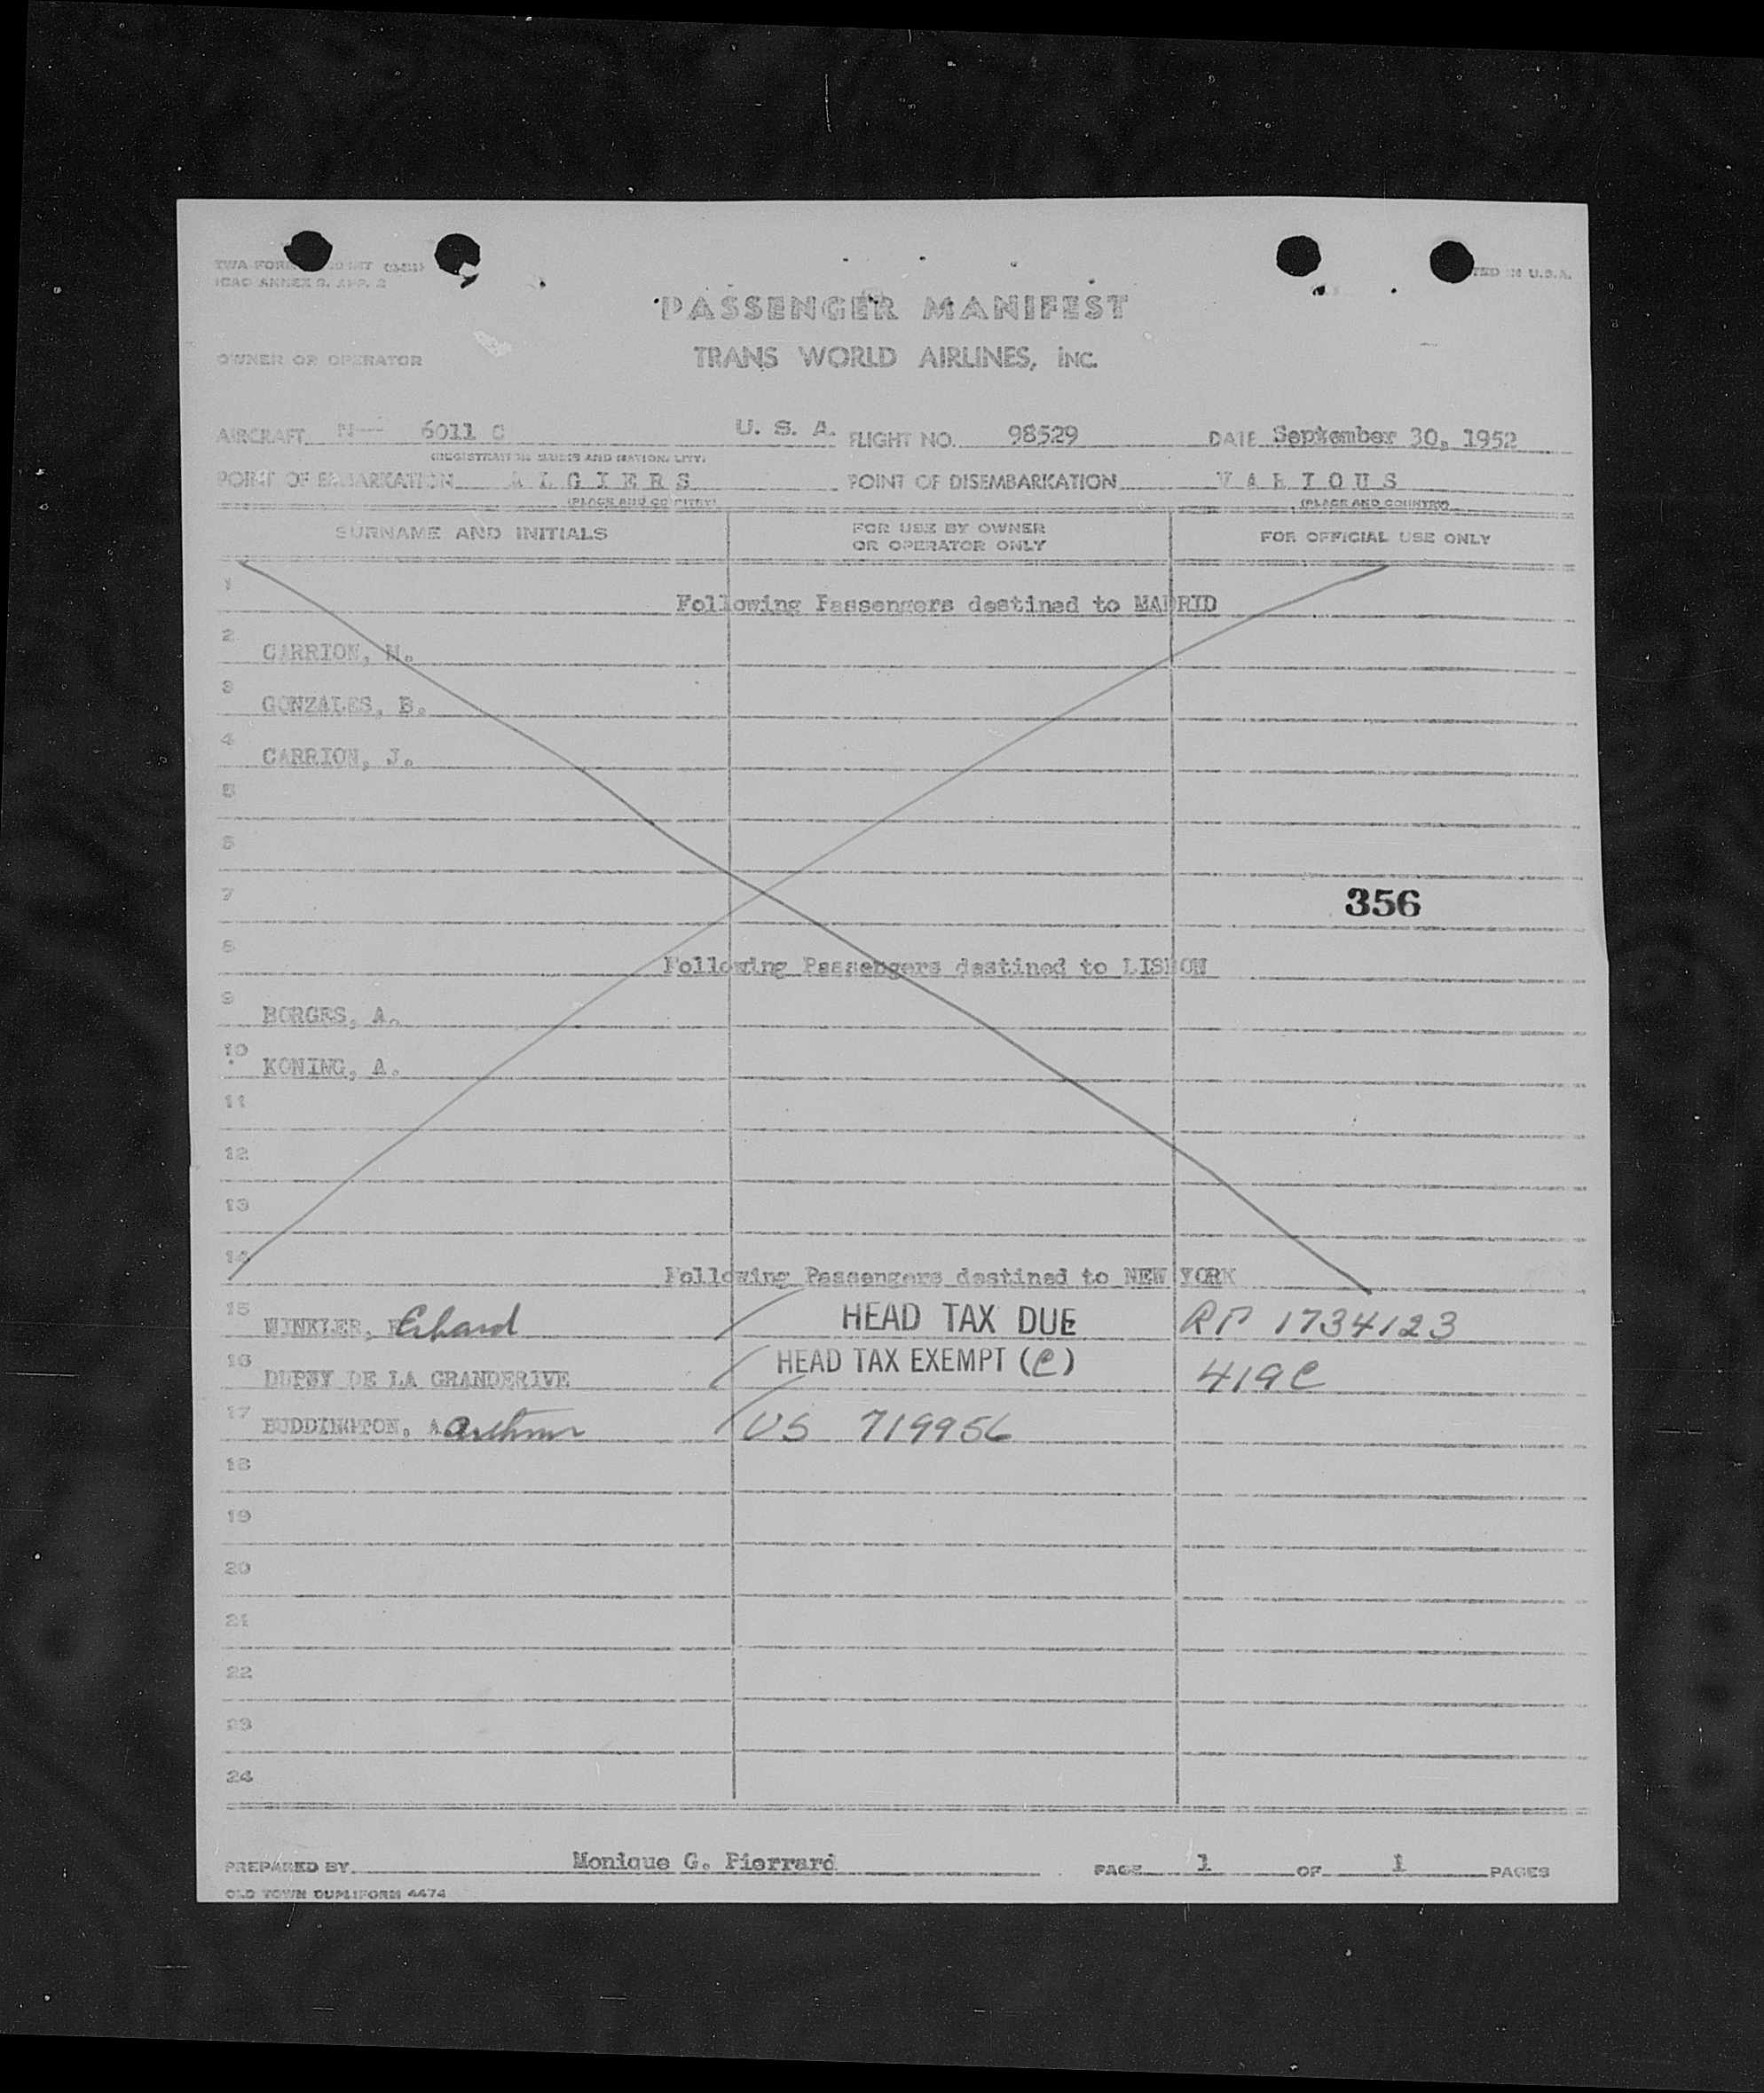 TWA FORM
ICAO ANNEX 9, APP. 2
TED IN U.S.A.
PASSENGER MANIFEST
OWNER OR OPERATOR TRANS WORLD AIRLINES, INC.
AIRCRAFT N— 6011 C U. S. A. FLIGHT NO. 98529 DATE September 30, 1952
(REGISTRATION MARKS AND NATIONALITY)
POINT OF EMBARKATION A L G I E R S POINT OF DISEMBARKATION V A R I O U S
(PLACE AND COUNTRY) (PLACE AND COUNTRY)
SURNAME AND INITIALS FOR USE BY OWNER OR OPERATOR ONLY FOR OFFICIAL USE ONLY
1 Following Passengers destined to MADRID
2 CARRION, M.
3 GONZALES, B.
4 CARRION, J.
5
6
7 356
8 Following Passengers destined to LISBON
9 BORGES, A.
10 KONING, A.
11
12
13
14 Following Passengers destined to NEW YORK
15 WINKLER, Erhard HEAD TAX DUE RP 1734123
16 DUPUY DE LA GRANDERIVE HEAD TAX EXEMPT (C) 419C
17 BUDDINGTON, A Arthur US 719956
18
19
20
21
22
23
24
PREPARED BY Monique G. Pierrard PAGE 1 OF 1 PAGES
OLD TOWN DUPLIFORM 4474